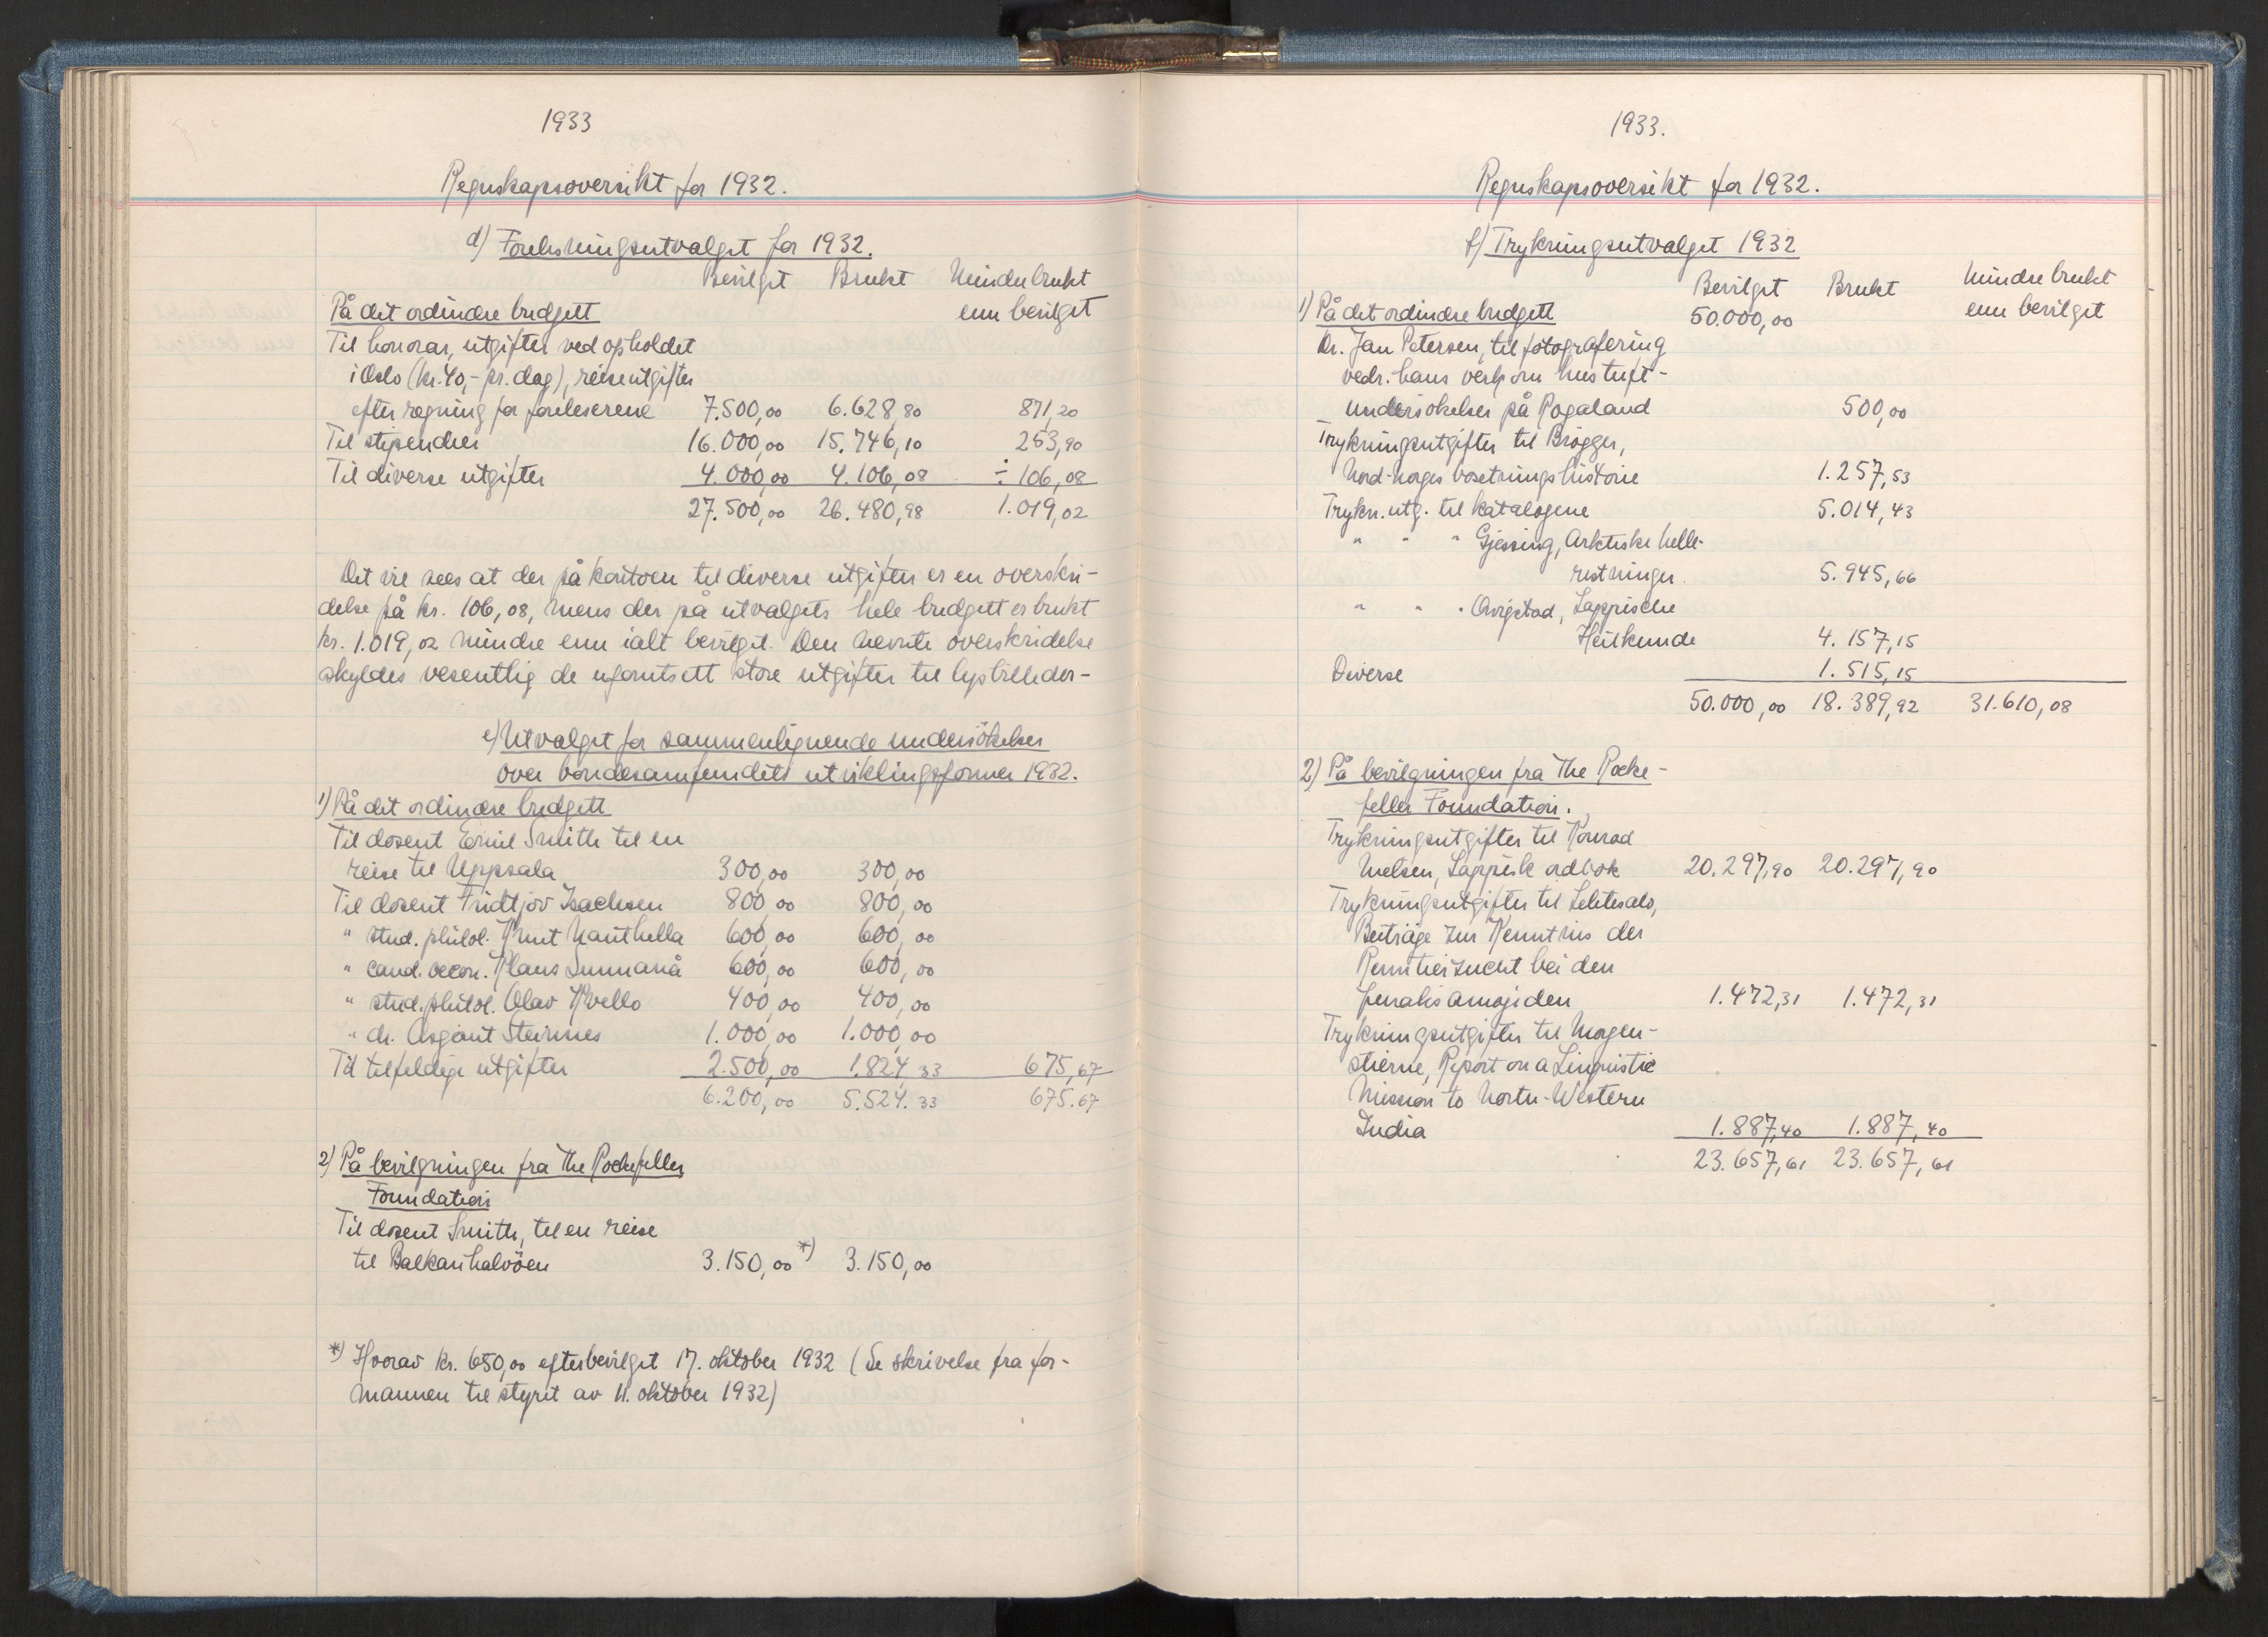 1933
Regnskapsoversikt for 1932.
d) Forelesningsutvalget for 1932.
Bevilget Brukt Mindre brukt
På det ordinære budgett enn bevilget
Til honorar, utgifter ved opholdet
i Oslo (kr. 40,- pr. dag), reiseutgifter
efter regning for foreleserene 7.500,00 6.628,80 871,20
Til stipendier 16.000,00 15.746,10 253,90
Til diverse utgifter 4.000,00 4.106,08 ÷ 106,08
27.500,00 26.480,98 1.019,02
Det vil sees at der på kontoen til diverse utgifter er en overskri-
delse på kr. 106,08, mens der på utvalgets hele budgett er brukt
kr. 1.019,02 mindre enn ialt bevilget. Den nevnte overskridelse
skyldes vesentlig de uforutsett store utgifter til lysbilleder-
e) Utvalget for sammenlignende undersökelser
over bondesamfundets utviklingsformer 1932.
1) På det ordinære budgett
Til dosent Emil Smith til en
reise til Uppsala 300,00 300,00
Til dosent Fridtjov Isachsen 800,00 800,00
" stud. philol. Knut Nauthella 600,00 600,00
" cand. oecon. Klaus Sunnanå 600,00 600,00
" stud. philol. Olav Kvello 400,00 400,00
" dr. Asgaut Steinnes 1.000,00 1.000,00
Til tilfeldige utgifter 2.500,00 1.824,33 675,67
6.200,00 5.524.33 675.67
2) På bevilgningen fra The Rockefeller
Foundation
Til dosent Smith, til en reise
til Balkanhalvöen 3.150,00 *) 3.150,00
*) Hvorav kr. 650,00 efterbevilget 17. oktober 1932 (Se skrivelse fra for-
mannen til styret av 11. oktober 1932)
1933.
Regnskapsoversikt for 1932.
f) Trykningsutvalget 1932
Bevilget Brukt Mindre brukt
1) På det ordinære budgett 50.000,00 enn bevilget
Dr. Jan Petersen, til fotografering
vedr. hans verk om hustuft-
undersökelser på Rogaland 500,00
Trykningsutgifter til Brögger,
Nord-Norges bosetningshistorie 1.257,53
Trykn. utg. til katalogene 5.014,43
" " " Gjessing, Arktiske helle-
ristninger. 5.945,66
" " " Qvigstad, Lappische
Heilkunde 4.157,15
Diverse 1.515,15
50.000,00 18.389,92 31.610,08
2) På bevilgningen fra The Rocke-
feller Foundation.
Trykningsutgifter til Konrad
Nielsen, Lappisk ordbok 20.297,90 20.297,90
Trykningsutgifter til Lehtisalo,
Beiträge zur Kenntnis der
Renntierzucht bei den
Juraksamojeden 1.472,31 1.472,31
Trykningsutgifter til Morgen-
stierne, Report on a Linguistic
Mission to North-Western
India 1.887,40 1.887,40
23.657,61 23.657,61